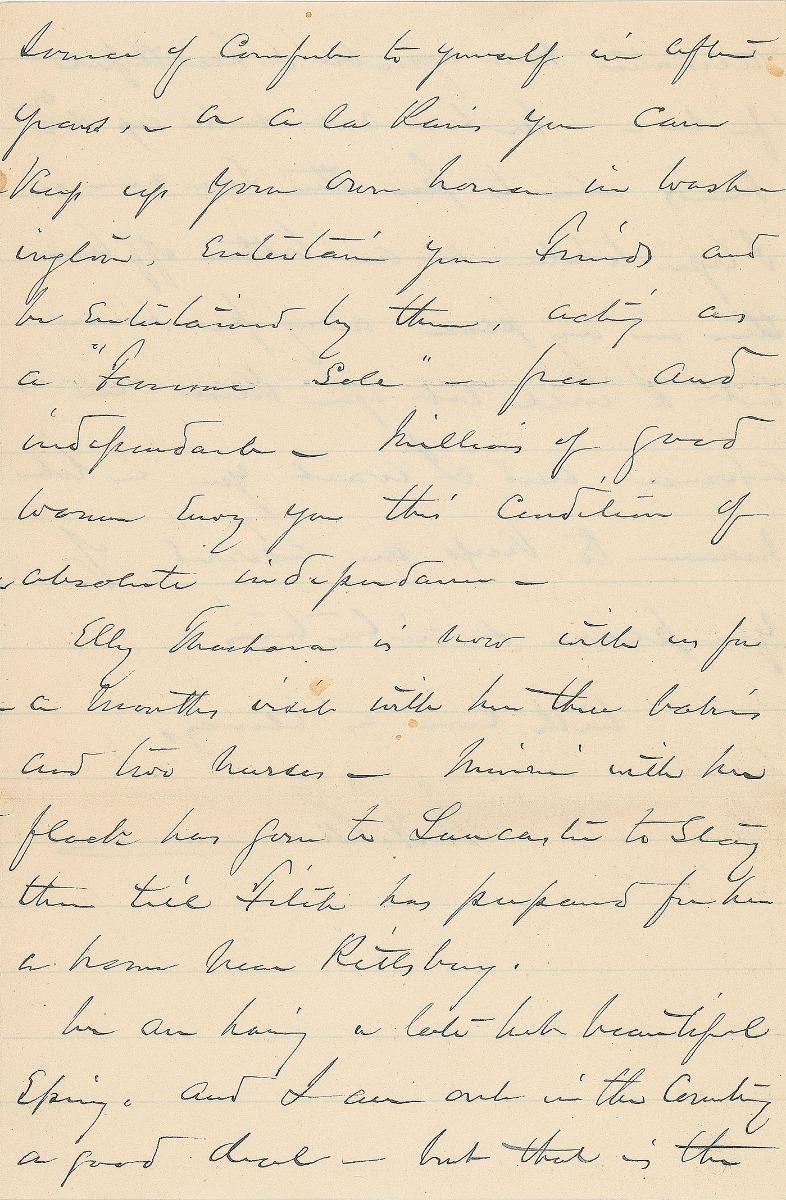 source of Comfort to yourself in after
years, - or a la Paris you can
Keep up your own house in Wash
ington, Entertain your Friends and
be Entertained by them, acting as
a "Femme Sole" - free and
independant - Millions of good
women Envy you this Condition of
absolute independance -
Elly Thackara is now with us for
- a months visit with her three babies
and two nurses - Minnie with her
flock has gone to Lancaster to Stay
there till Fitch has prepared for her
a home near Pittsburg.
We are having a late but beautiful
Spring. and I am out in the Country
a good deal - but that is the